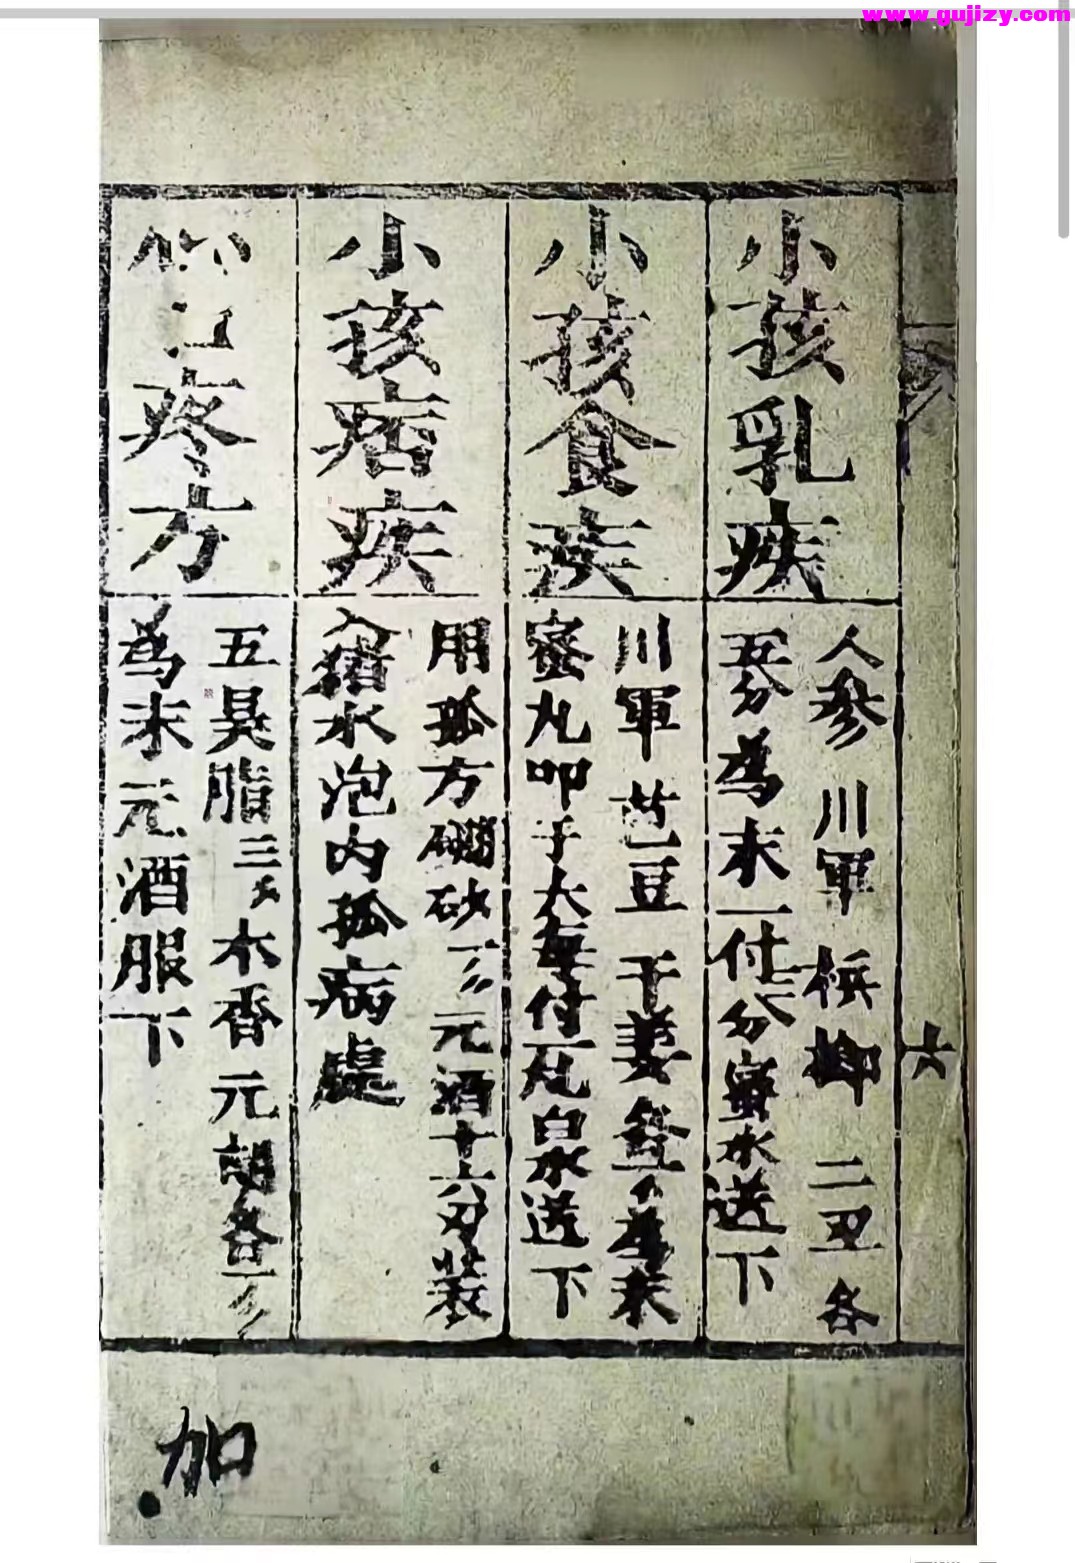 www.gujizy.com
六
小孩乳疾
人參 川軍 梹榔 二丑 各
五分為末一付七分蜜水送下
小孩食疾
川軍 芭豆 干姜 各一 為末
蜜丸叩子大每付一丸白水送下
小孩痞疾
用孤方硼砂一 元酒十六 裝
入猪水泡内孤病處
心口疼方
五灵脂三 木香 元胡各一
為末元酒服下
加